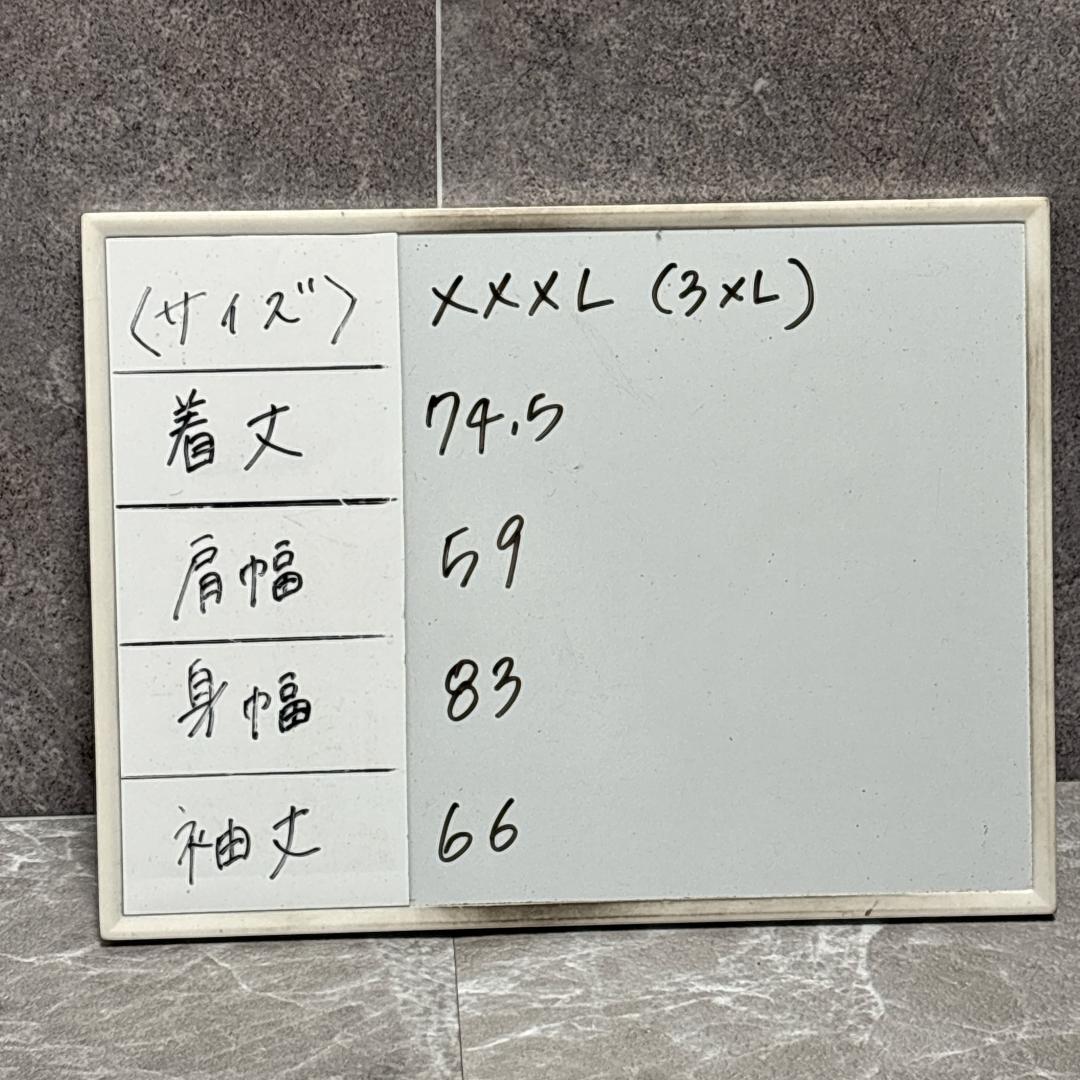 〈サイズ〉 XXXL (3XL)
着丈 74.5
肩幅 59
身幅 83
袖丈 66